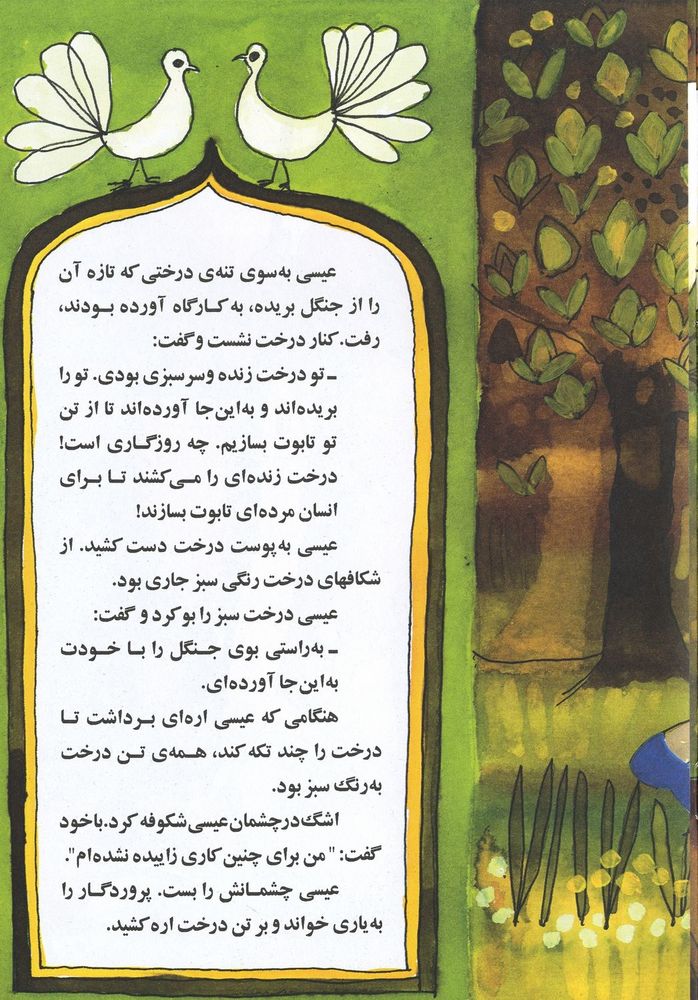 عیسی به‌سوی تنه‌ی درختی که تازه آن
را از جنگل بریده، به کارگاه آورده بودند،
رفت. کنار درخت نشست و گفت:
ـ تو درخت زنده وسرسبزی بودی. تو را
بریده‌اند و به‌این‌جا آورده‌اند تا از تن
تو تابوت بسازیم. چه روزگاری است!
درخت زنده‌ای را می‌کشند تا برای
انسان مرده‌ای تابوت بسازند!
عیسی به‌پوست درخت دست کشید. از
شکافهای درخت رنگی سبز جاری بود.
عیسی درخت سبز را بو کرد و گفت:
ـ به‌راستی بوی جنگل را با خودت
به‌این‌جا آورده‌ای.
هنگامی که عیسی اره‌ای برداشت تا
درخت را چند تکه کند، همه‌ی تن درخت
به‌رنگ سبز بود.
اشگ درچشمان عیسی شکوفه کرد. باخود
گفت: " من برای چنین کاری زاییده نشده‌ام".
عیسی چشمانش را بست. پروردگار را
به‌یاری خواند و بر تن درخت اره کشید.